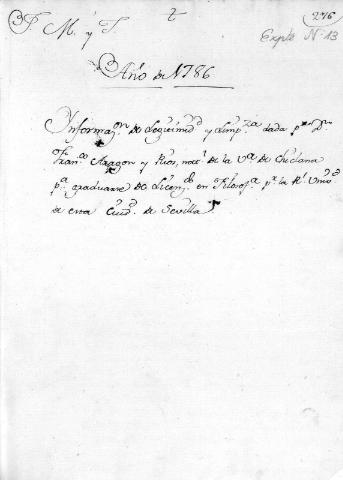 J. M. y J.
276
Expte Nº 13
Año de 1786
Informaⁿ de Legitimᵈ y Limpᶻᵃ dada pʳ Dⁿ
Franᶜᵒ Aragon y Rios, natˡ de la Vᵃ de Chiclana
pᵃ graduarse de Licenᵈᵒ en Filosofᵃ pʳ la Rˡ Univᵈ
de esta Ciuᵈ de Sevilla